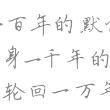 一百年的默
身一千年的
轮回一万年